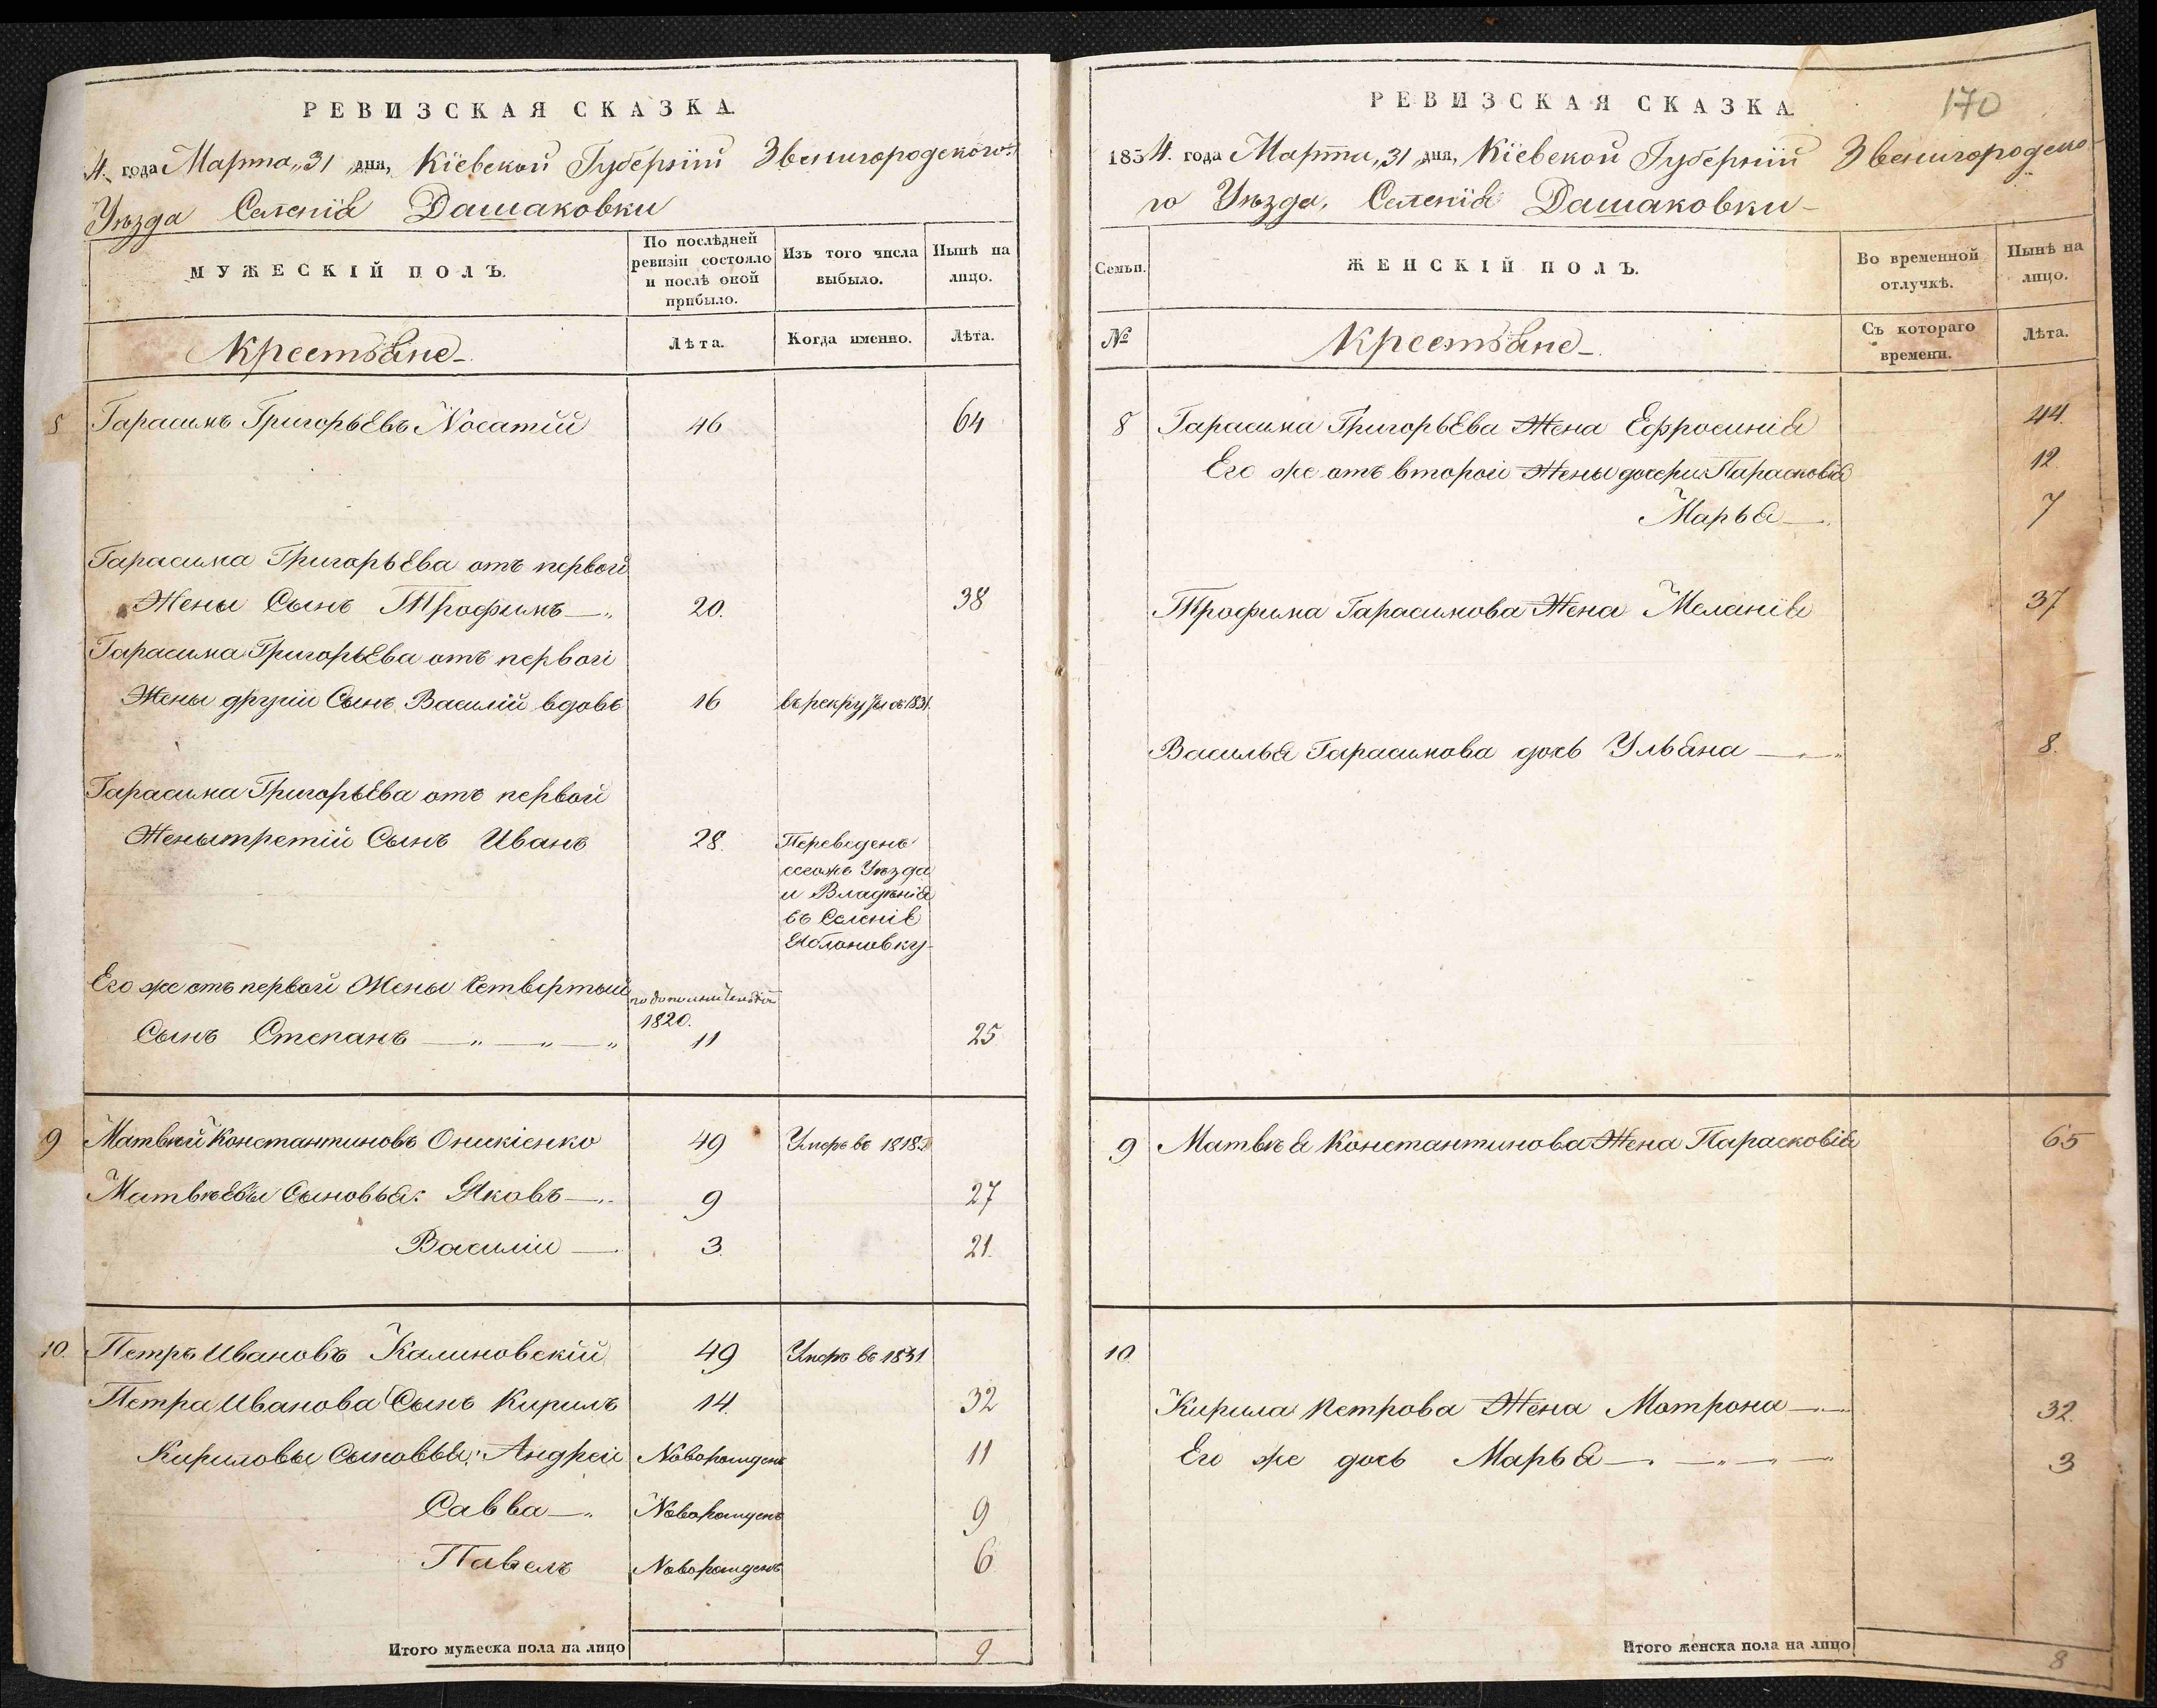 РЕВИЗСКАЯ СКАЗКА.
4. года Марта „31 дня, Кіевской Губерніи Звенигородского
Уѣзда Селенія Дашаковки
МУЖЕСКІЙ ПОЛЪ.
По послѣдней ревизіи состояло и послѣ оной прибыло.
Изъ того числа выбыло.
Нынѣ на лицо.
Крестьяне
Лѣта.
Когда именно.
Лѣта.
8 Гарасимъ Григорьевъ Носатый 46 64
Гарасима Григорьева отъ первой
Жены Сынъ Трофимъ 20. 38
Гарасима Григорьева отъ первой
Жены другій Сынъ Василій вдовъ 16 въ рекруты въ 1831.
Гарасима Григорьева отъ первой
Жены третій Сынъ Иванъ 28. Переведенъ
сеожъ Уѣзда
и Владѣнія
въ Селеніе
Яблоновку
Его же отъ первой Жены Четвертый
1820.
Сынъ Степанъ 11 25
9 Матвѣй Константиновъ Онискіенко 49 Умеръ въ 1818.
Матвѣевы Сыновья: Яковъ 9 27
Василій 3. 21.
10. Петръ Ивановъ Калиновскій 49 Умеръ въ 1831
Петра Иванова Сынъ Кирилъ 14. 32
Кириловы Сыновья: Андрей Новорожденъ 11
Савва Новорожденъ 9
Павелъ Новорожденъ 6
Итого мужеска пола на лицо 9
170
РЕВИЗСКАЯ СКАЗКА
1834. года Марта „31 дня, Кіевской Губерніи Звенигородско-
го Уѣзда, Селенія Дашаковки
Семьи.
ЖЕНСКІЙ ПОЛЪ.
Во временной отлучкѣ.
Нынѣ на лицо.
№
Крестьяне
Съ котораго времени.
Лѣта.
8 Гарасима Григорьева Жена Ефросинія 44.
Его же отъ второй Жены дочери: Парасковія 12.
Марья 7
Трофима Гарасимова Жена Меланія 37
Василья Гарасимова дочь Ульяна 8.
9 Матвѣя Константинова Жена Парасковія 65
10
Кирила Петрова Жена Матрона 32.
Его же дочь Марья 3
Итого женска пола на лицо 8